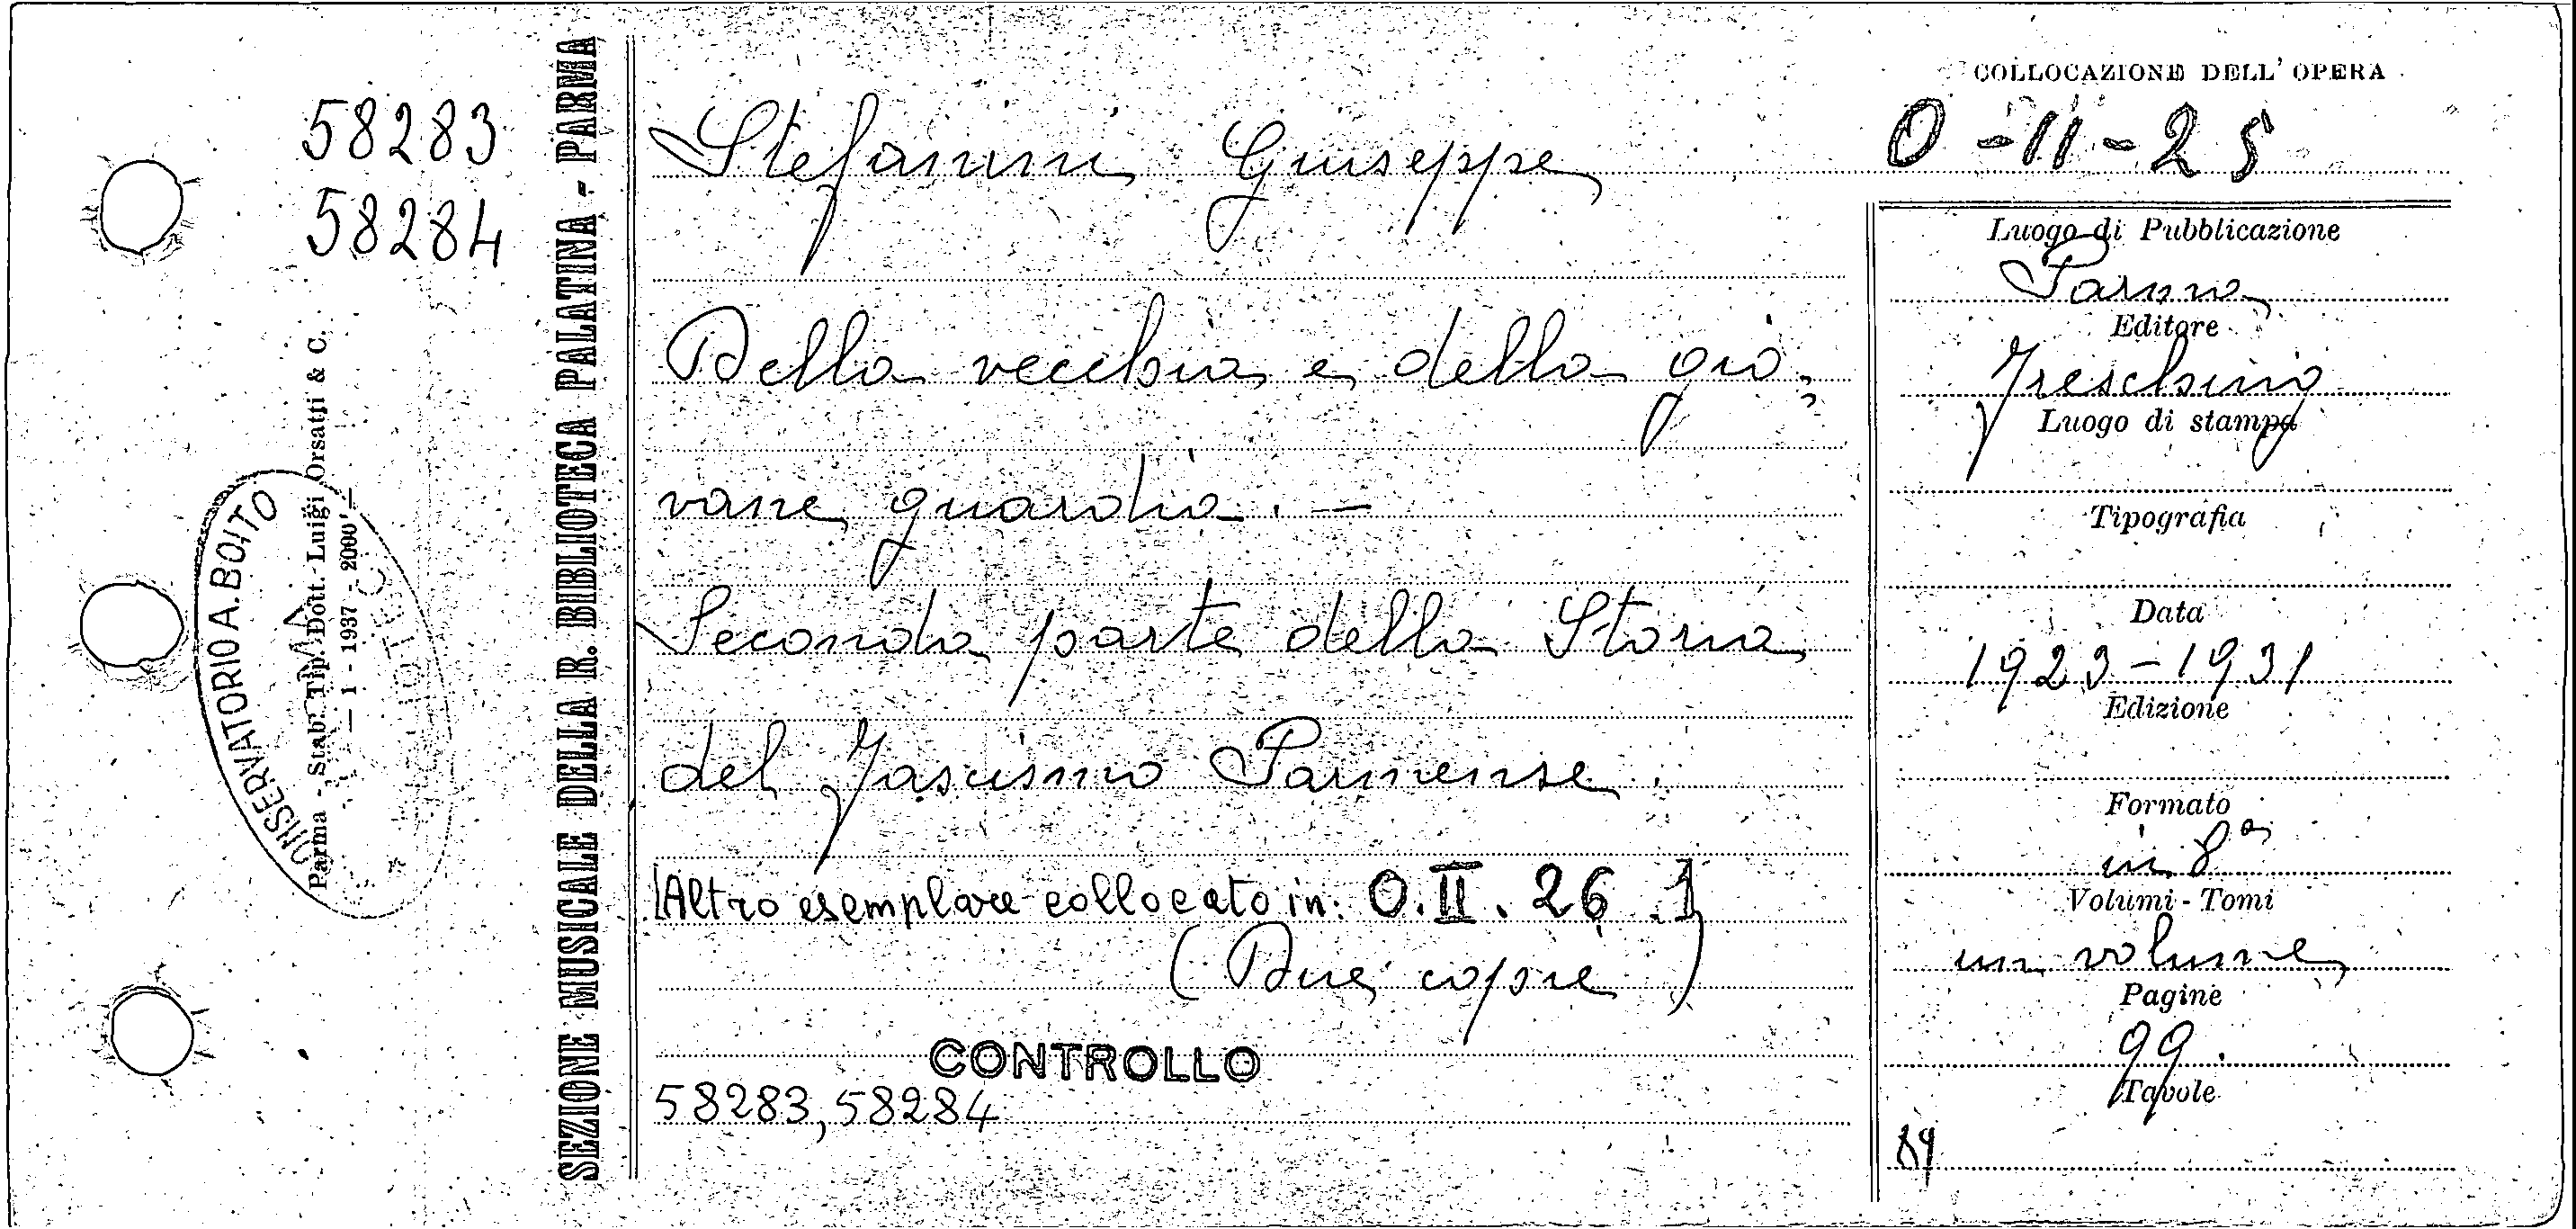 58283
58284
SEZIONE MUSICALE DELLA R. BIBLIOTECA PALATINA - PARMA
Parma - Stab. Tip. Dott. Luigi Orsatti & C.
— 1 - 1937 - 2000 —
CONSERVATORIO A. BOITO
Stefanini Giuseppe
Della vecchia e della gio,
vane guardia. —
Seconda parte della Storia
del Fascismo Parmense.
[Altro esemplare collocato in: O.II.26.]
(Due copie)
CONTROLLO
58283, 58284
COLLOCAZIONE DELL'OPERA
O-II-25
Luogo di Pubblicazione
Parma
Editore
Freschino
Luogo di stampa
Tipografia
Data
1923-1931
Edizione
Formato
in 8°
Volumi - Tomi
un volume
Pagine
99.
Tavole
89